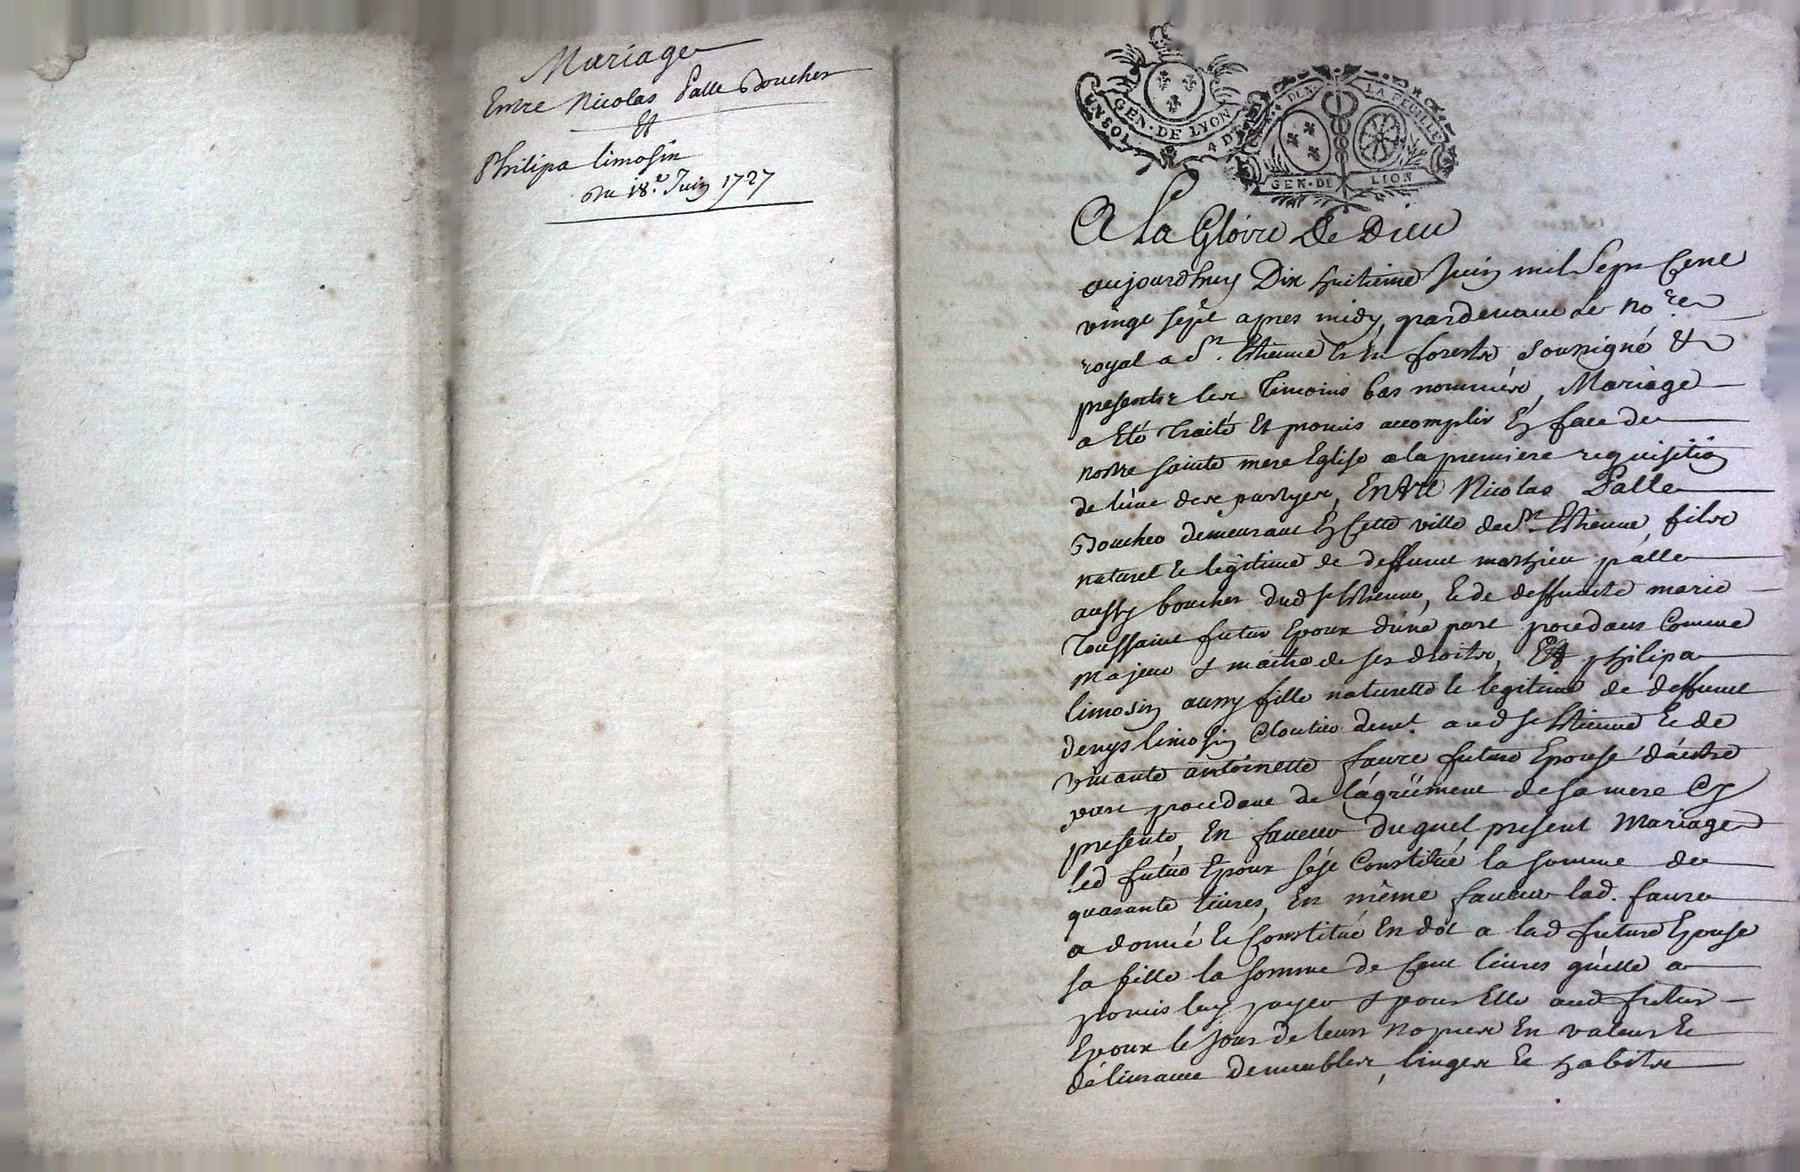 Mariage
Entre Nicolas Palle Boucher
Et
Philipa limosin
Du 18.e Juin 1727
GEN·DE LYON
UN SOL
4 D
LA FEUILLE
GEN·DE LION
A La Gloire De Dieu
aujourdhuy Dix huitieme Juin mil Sept Cent
vingt sept apres midy, pardevant le no.re
royal a St. Etienne en forestz soussigné &
presentz les temoins bas nommés, Mariage
a Eté traité Et promis accomplir En face de
nostre sainte mere Eglise a la premiere requisition
de lune des partyes, Entre Nicolas Palle
Boucher demeurant En Cette ville de St. Etienne filz
naturel & legitime de deffunt mathieu palle
aussy boucher dud St Etienne, & de deffunte marie
Toussaint futur Epoux dune part procedant Comme
majeur & maitre de ses droitz, Et philipa
limosin aussy fille naturelle & legitime de deffunt
denys limosin Cloutier demt. aud St Etienne & de
vivante antoinette faure future Epouse dautre
part procedant de lagrement de sa mere Cy
presente, En faveur duquel present Mariage
led futur Epoux sest Constitué la somme de
quarante livres, En même faveur lad. faure
a donné & Constitué En dot a lad future Epouse
sa fille la somme de Cent livres quelle a
promis luy payer & pour Elle aud futur
Epoux le jour de leurs nopces En valeur &
délivrance de meubles, linges & habitz